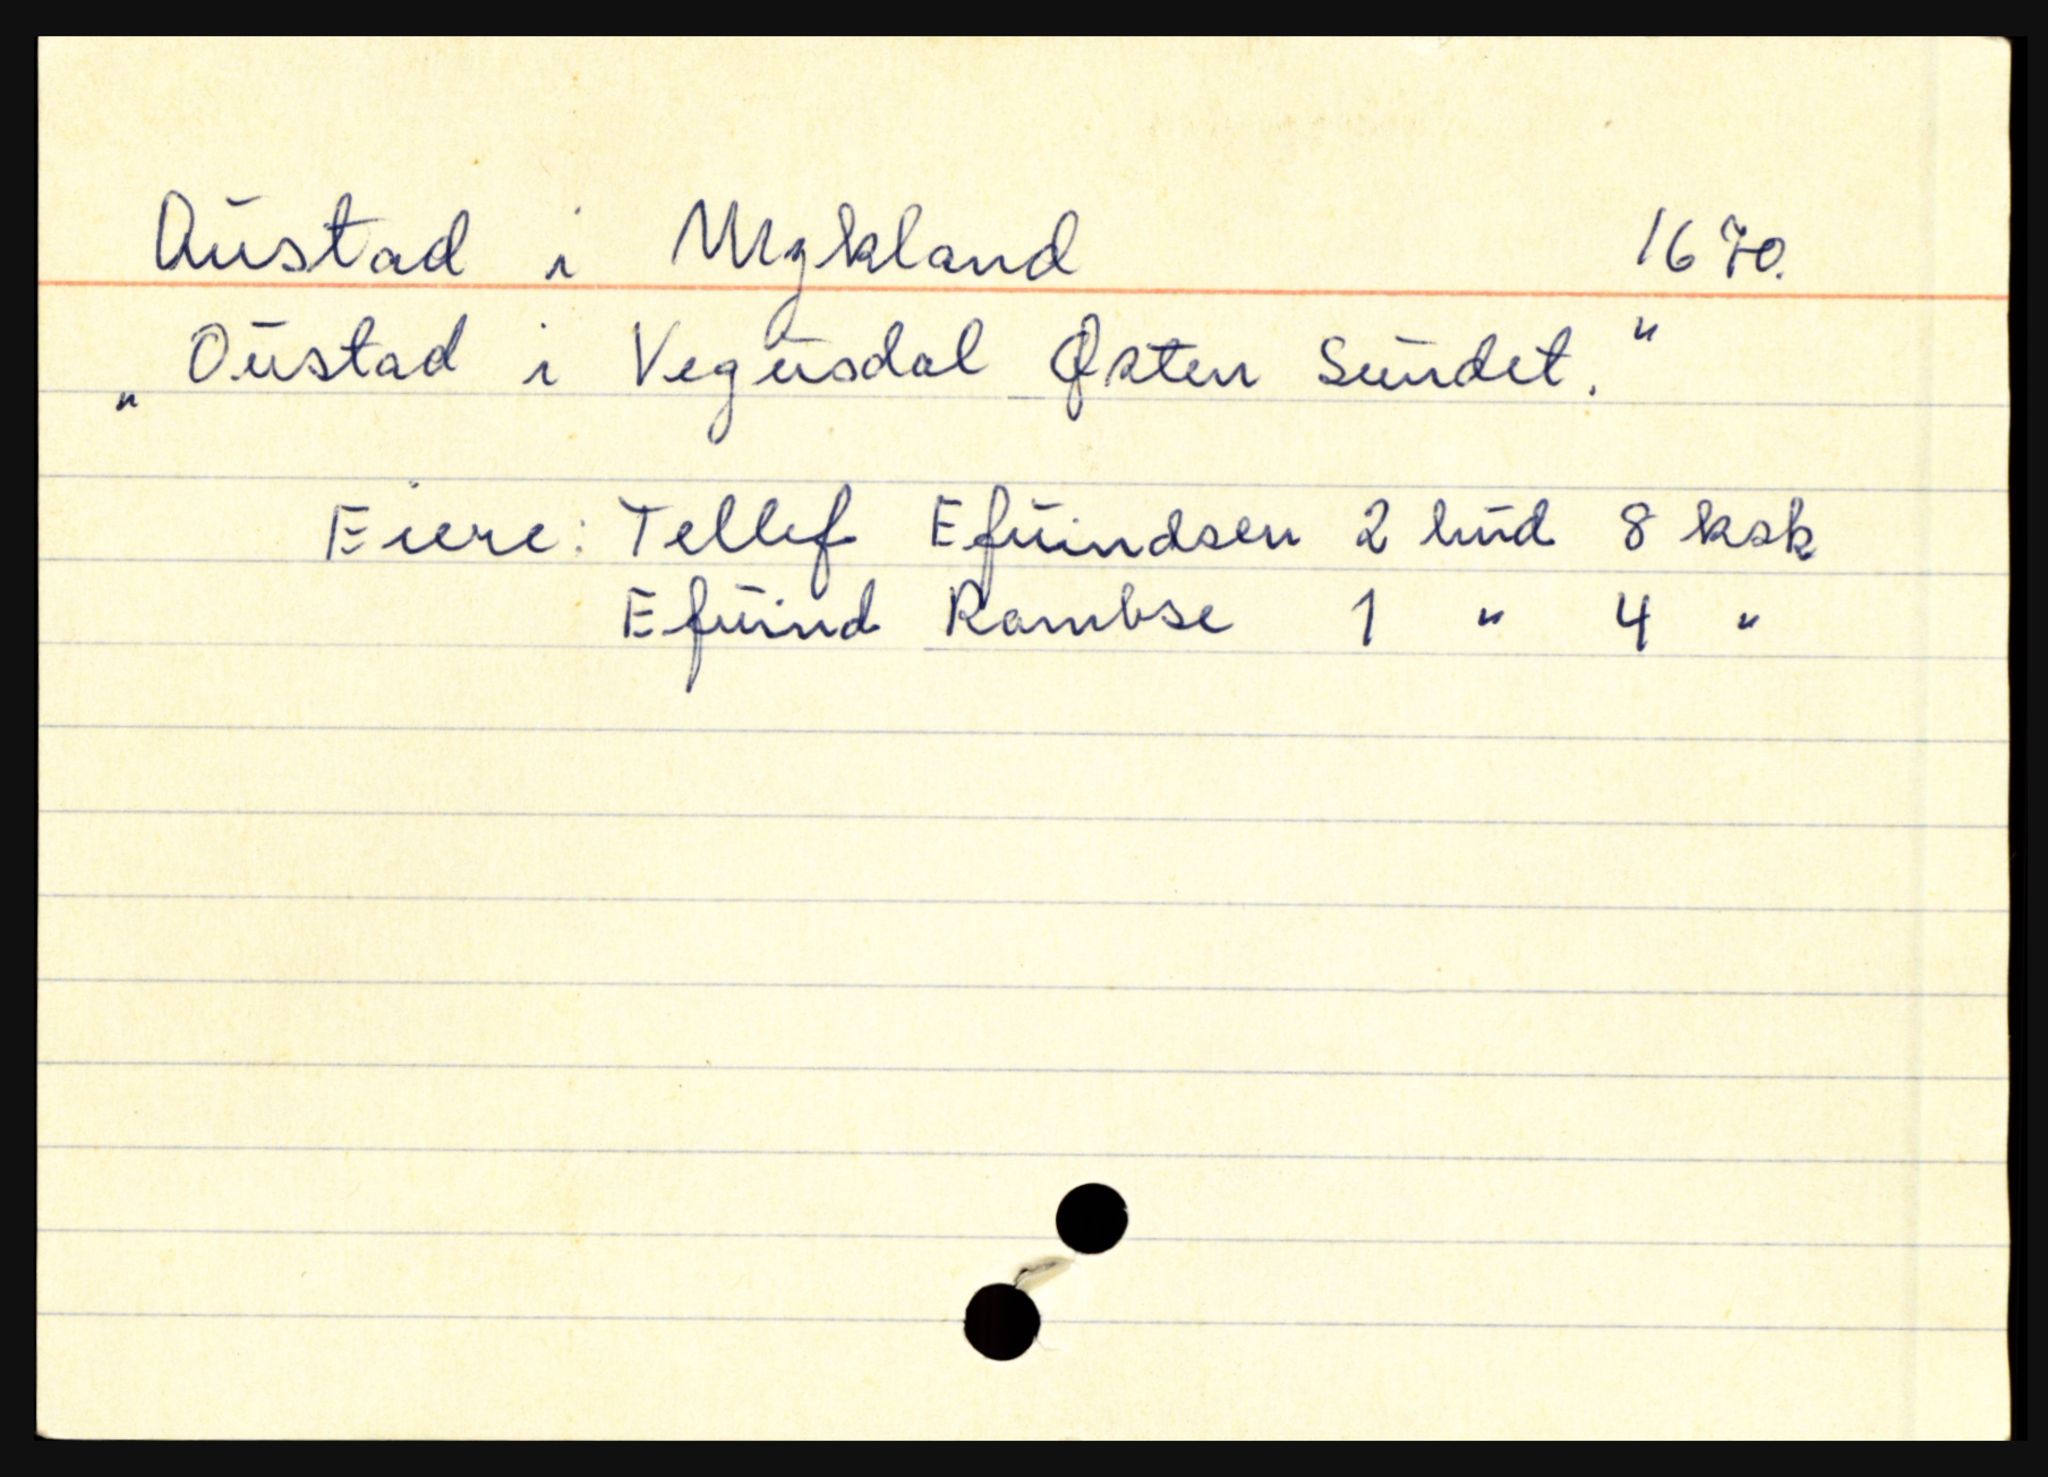 Austad i Mykland 1670.
„Oustad i Vegusdal Østen Sundet."
Eiere: Tellef Efuindsen 2 hud 8 ksk
Efuind Rambse 1 " 4 "